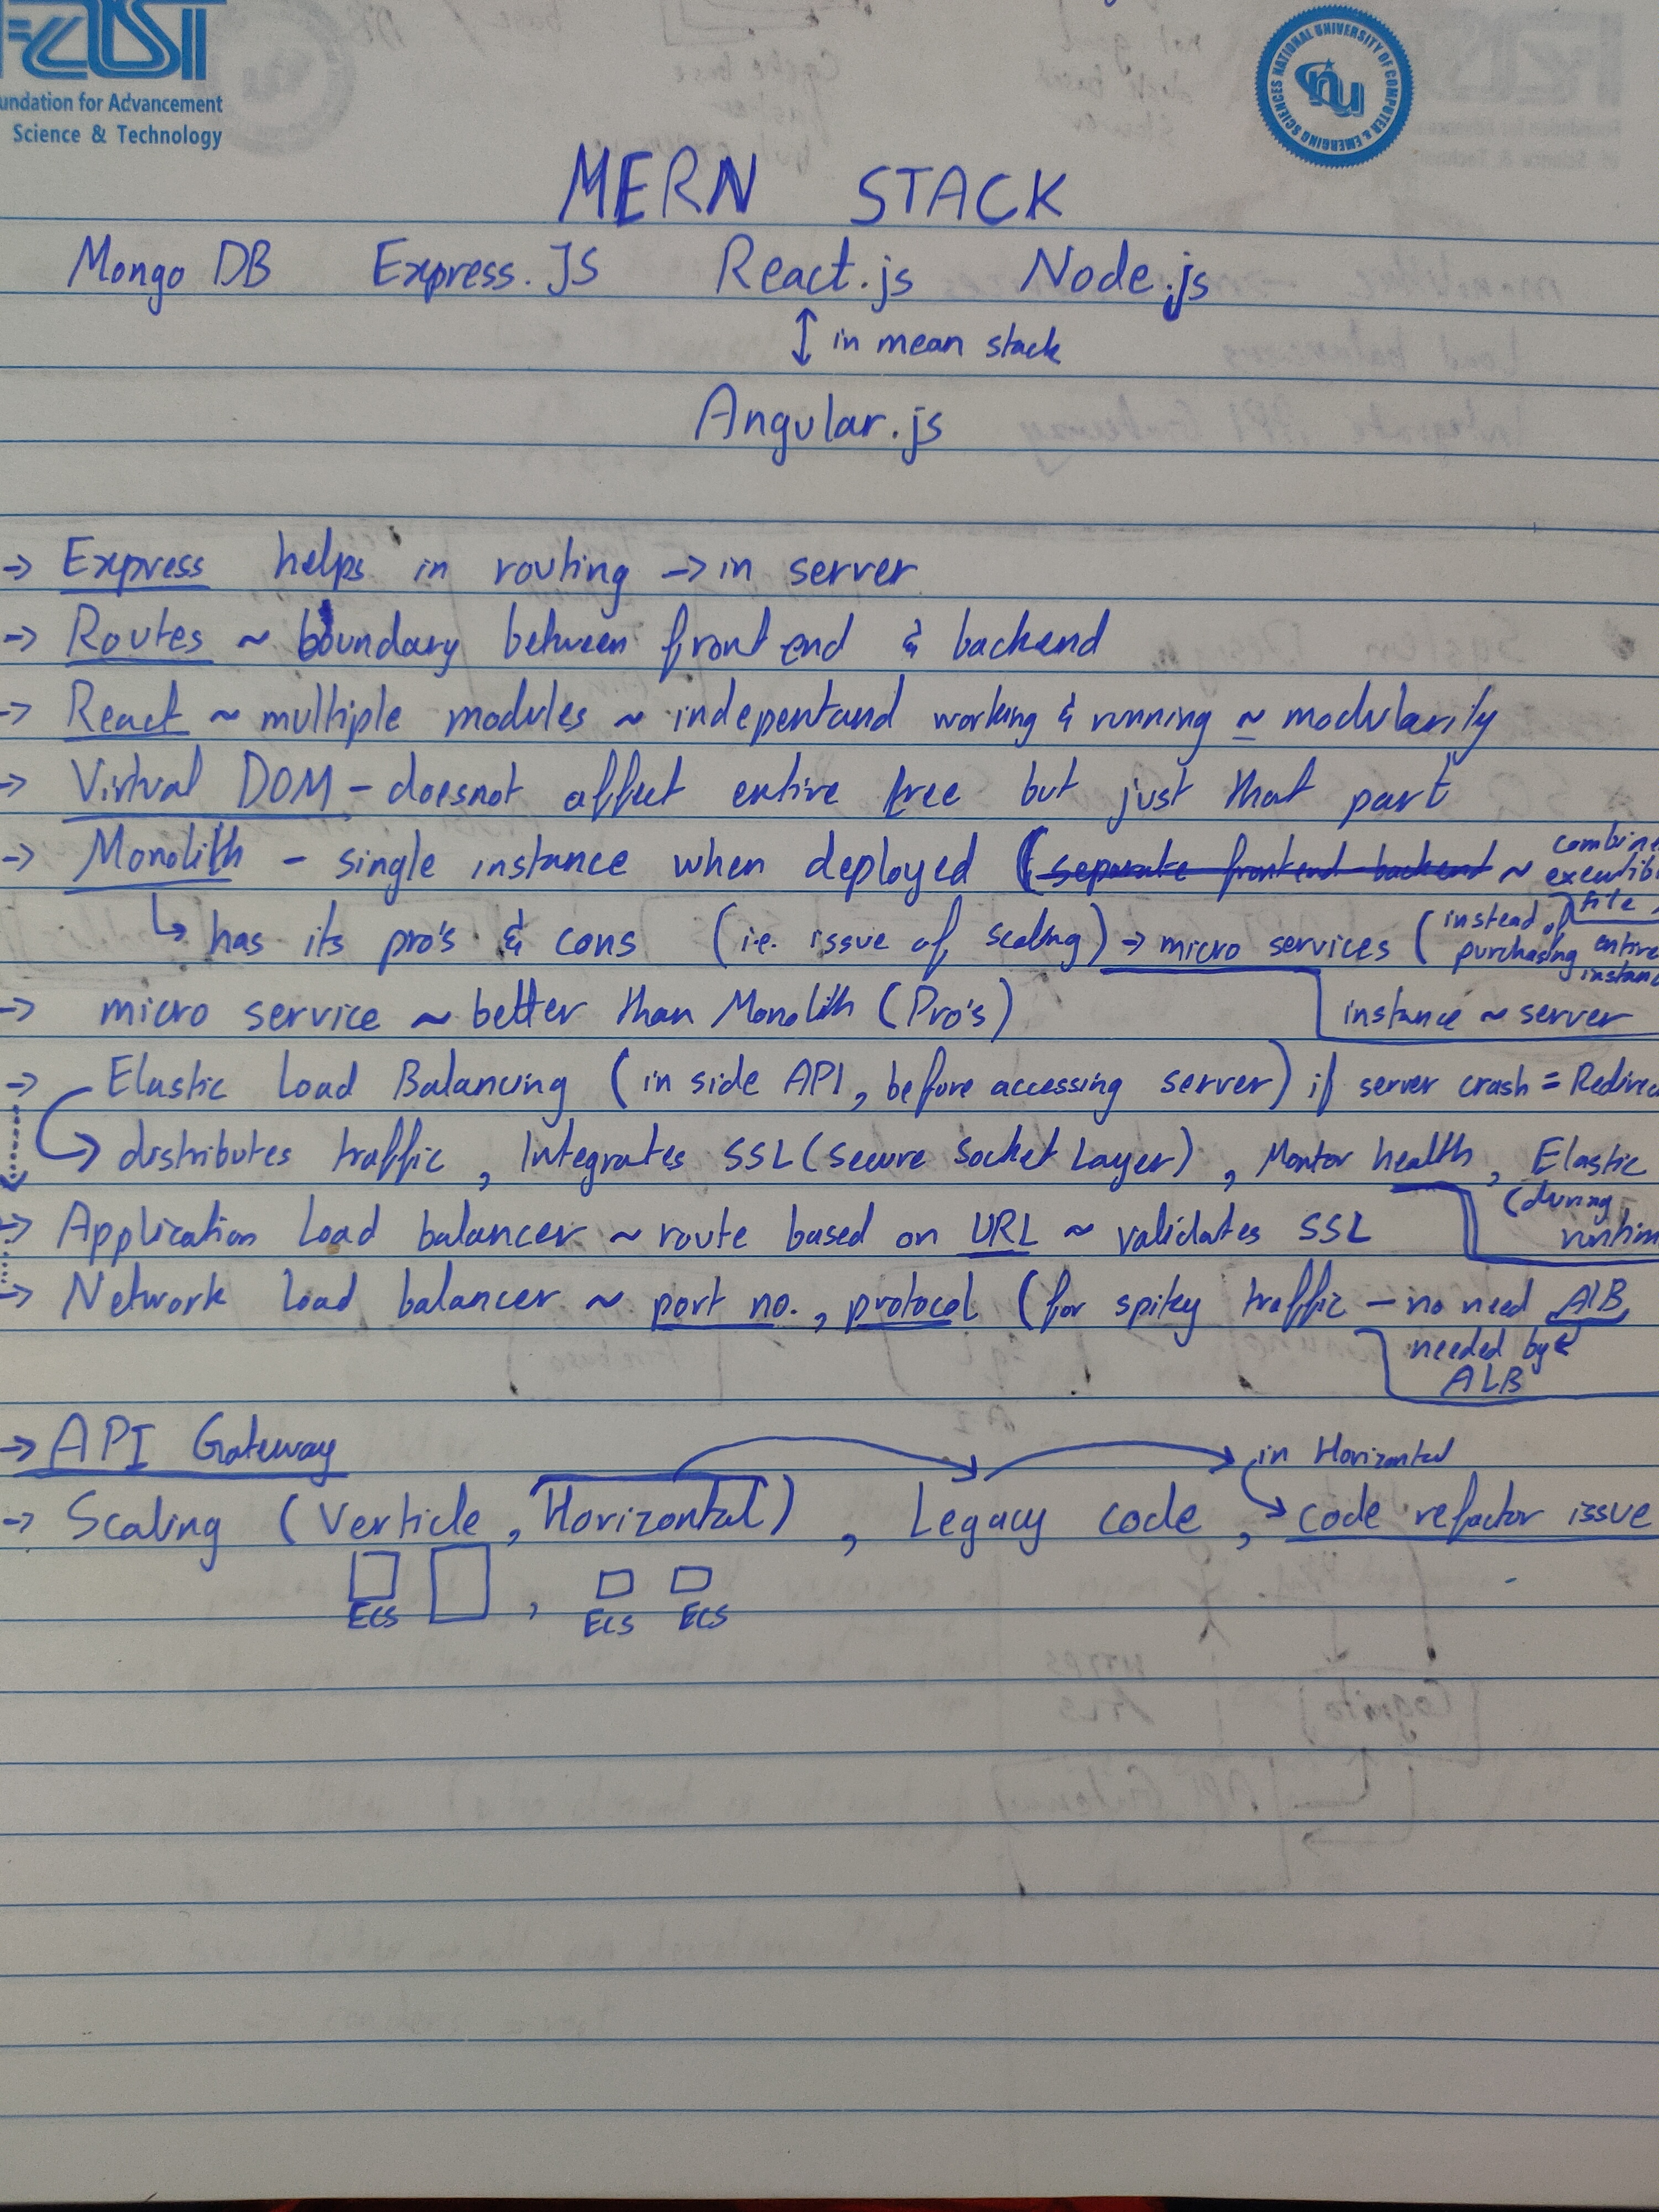 FAST
undation for Advancement
Science & Technology
NATIONAL UNIVERSITY OF COMPUTER & EMERGING SCIENCES
nu
MERN STACK
Mongo DB Express.JS React.js Node.js
↕ in mean stack
Angular.js
-> Express helps in routing -> in server
-> Routes ~ boundary between front end & backend
-> React ~ multiple modules ~ indepentand working & running ~ modularity
-> Virtual DOM - doesnot affect entire tree but just that part
-> Monolith - single instance when deployed (separate frontend backend ~ combine executib file
↳ has its pro's & cons (i.e. issue of scaling) -> micro services (instead of purchasing entire instanc
-> micro service ~ better than Monolith (Pro's)
instance ~ server
-> Elastic Load Balancing (in side API, before accessing server) if server crash = Redirec
-> distributes traffic, Integrates SSL (Secure Socket Layer), Montor health, Elastic (during runtim
-> Application Load balancer ~ route based on URL ~ validates SSL
-> Network Load balancer ~ port no., protocol (for spikey traffic - no need ALB
needed by
ALB
-> API Gateway
in Horizontal
-> Scaling (Verticle, Horizontal), Legacy code, -> code refactor issue
ECS , ECS ECS